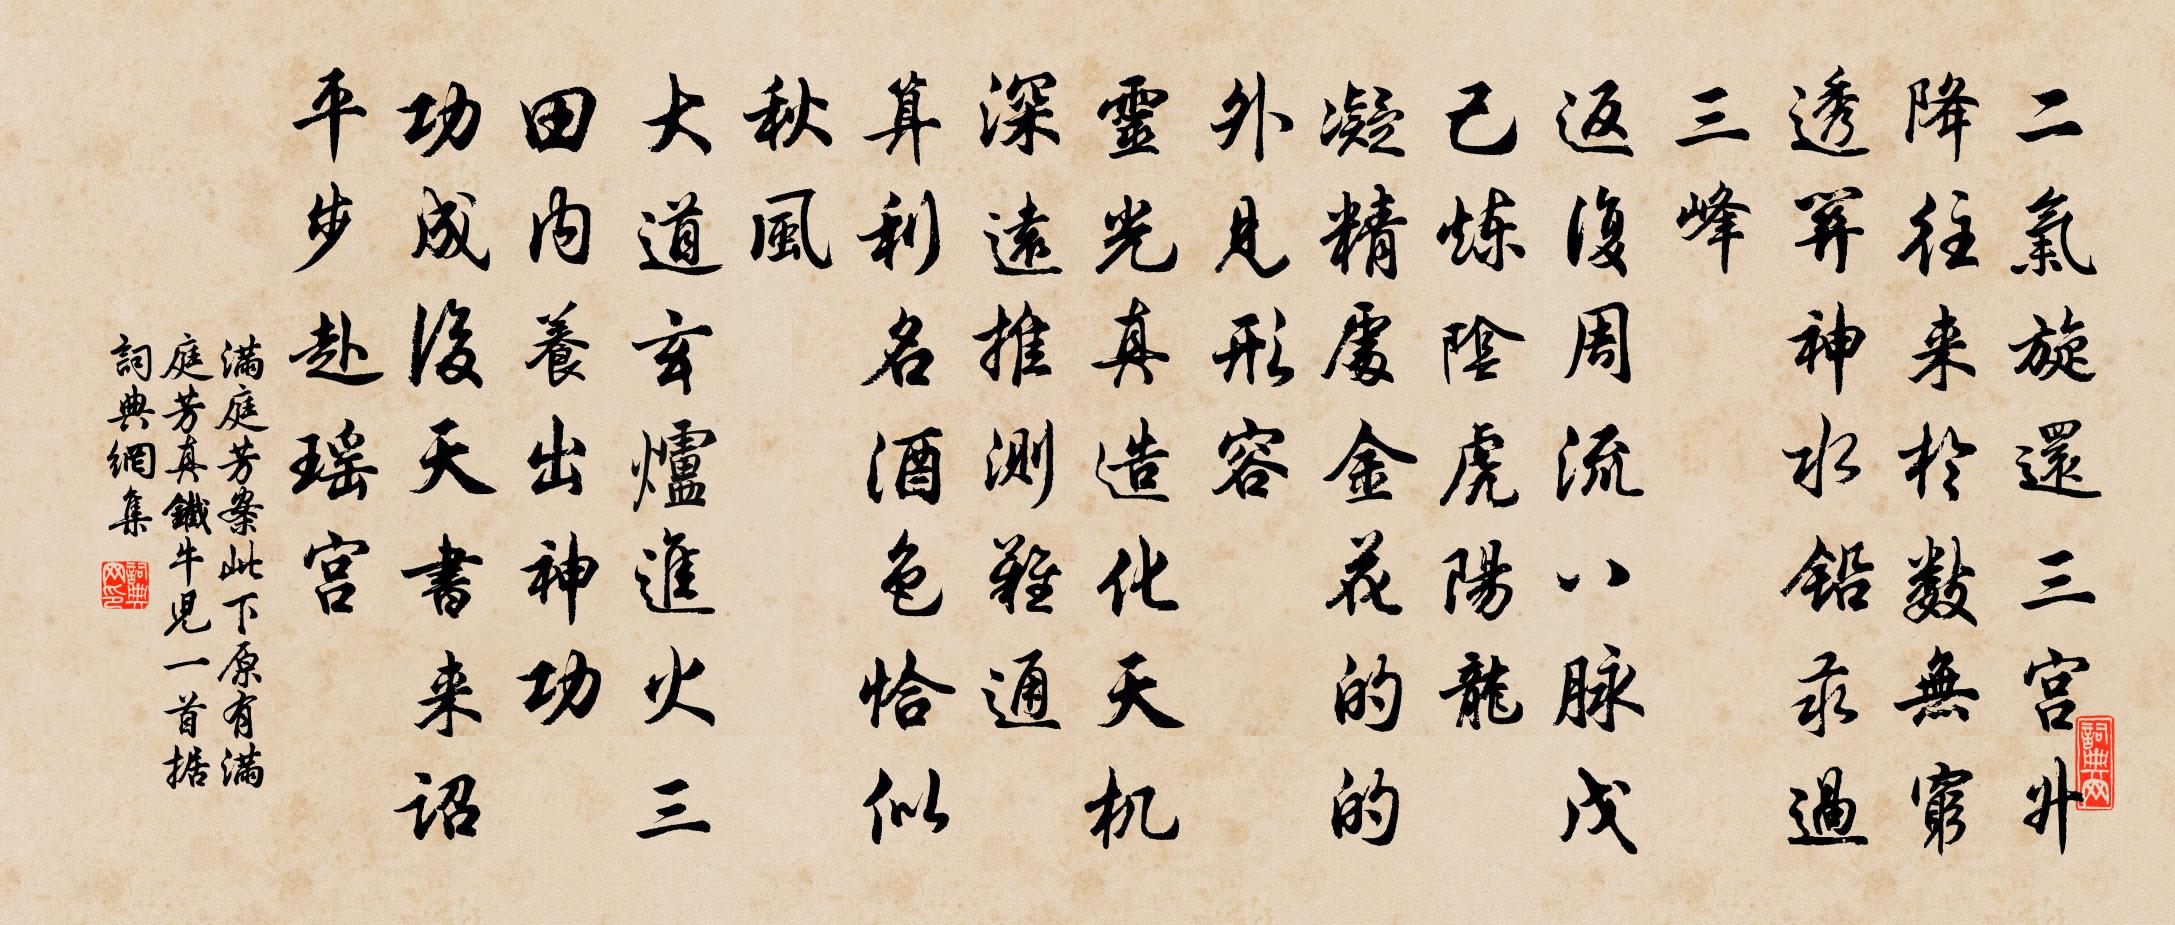 二氣旋還三宮升
降往来於数無窮
透关神水鉛汞過
三峰
返復周流八脉戊
己炼陰虎陽龍
凝精處金花的的
外見形容
靈光真造化天机
深遠推測難通
算利名酒色恰似
秋風
大道玄爐進火三
田内養出神功
功成後天書来詔
平步赴瑶宮
满庭芳案此下原有满
庭芳真鐵牛児一首据
詞典網集
詞典网印
詞典网